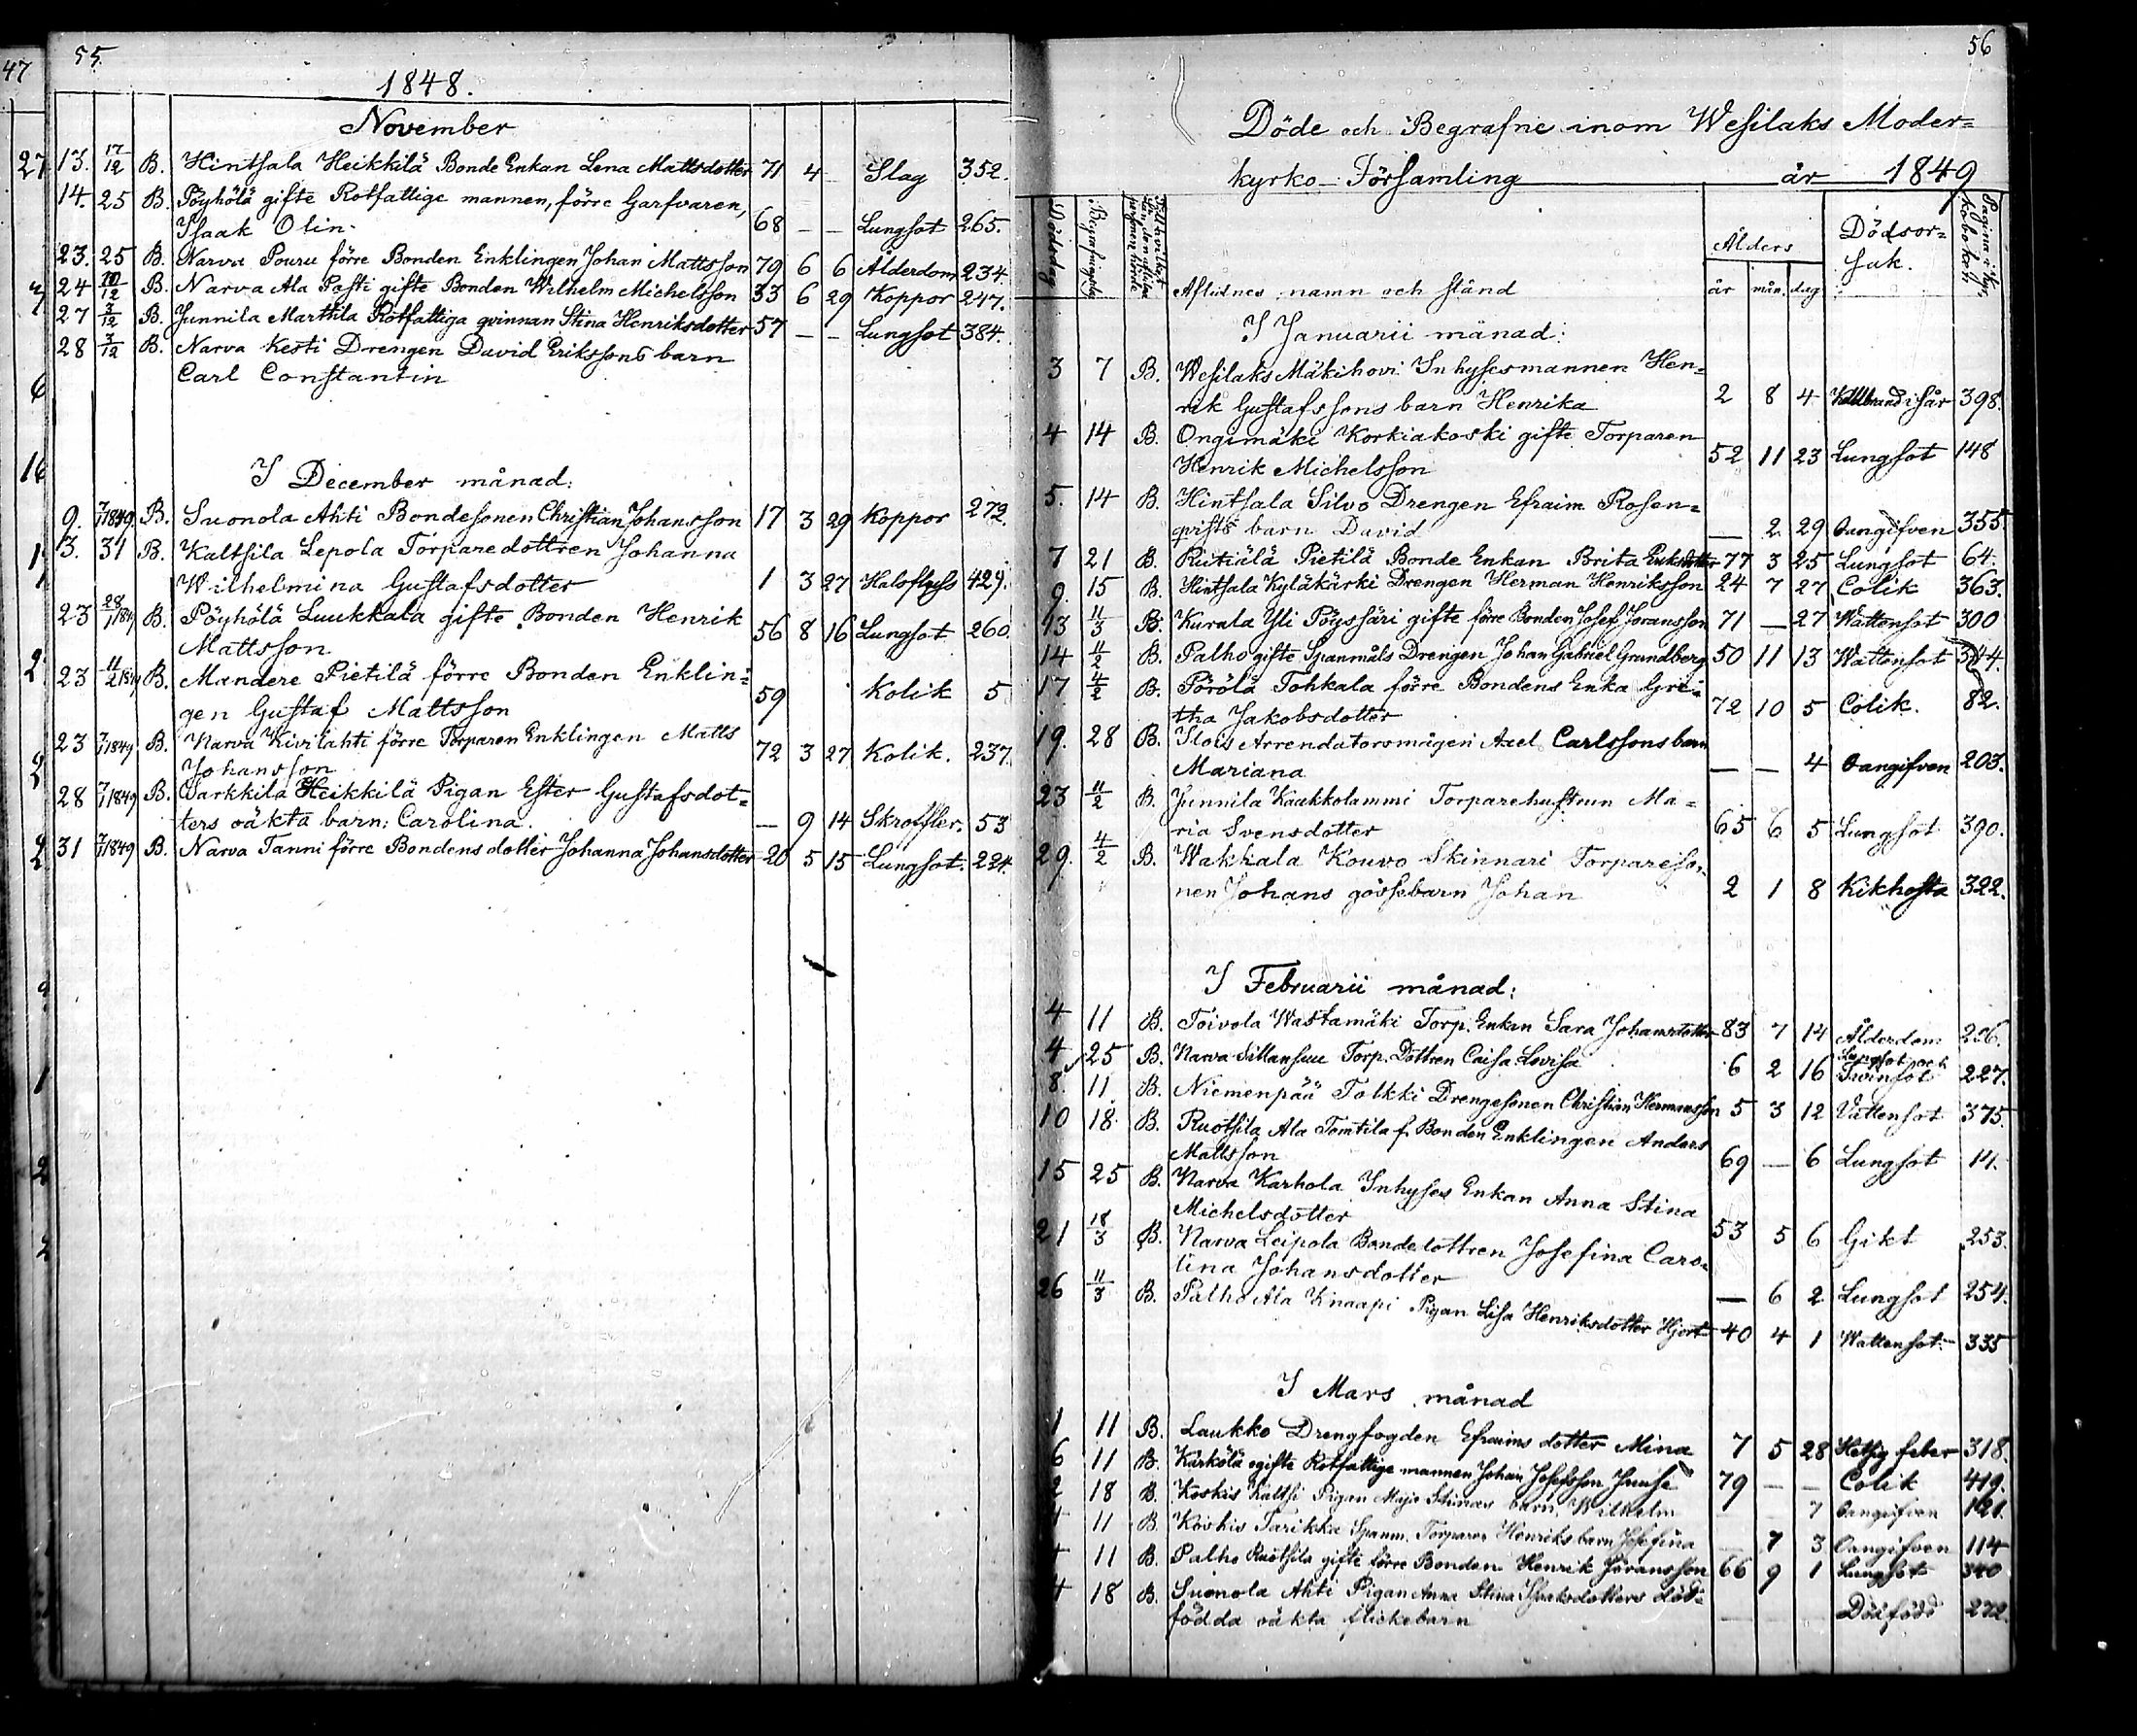 47
55.
1848.
November
27 13. 17/12 B. Hintsala Heikkilä Bonde Enkan Lena Mattsdotter 71 4 – Slag 352.
14. 25 B. Pöyhölä gifte Rotfattige mannen, förre Garfvaren,
Isaak Olin. 68 – – Lungsot 265.
23. 25 B. Narva Pouru förre Bonden Enklingen Johan Mattsson 79 6 6 Ålderdom 234.
24 10/12 B. Narva Ala Pasti gifte Bonden Wilhelm Michelsson 33 6 29 Koppor 247.
27 3/12 B. Junnila Marttila Rotfattiga qvinnan Stina Henriksdotter 57 – – Lungsot 384.
28 3/12 B. Narva Kesti Drengen David Erikssons barn
Carl Constantin
I December månad:
9. 7/1 1849 B. Suonola Ahti Bondesonen Christian Johansson 17 3 29 Koppor 272.
3. 31 B. Kaltsila Lepola Torparedottren Johanna
Wilhelmina Gustafsdotter 1 3 27 Halsfluss 429.
23 28/1 1849 B. Pöyhölä Luukkala gifte Bonden Henrik
Mattsson 56 8 16 Lungsot 260.
23 11/2 1849 B. Mandere Pietilä förre Bonden Enklin-
gen Gustaf Mattsson 59 Kolik 5
23 7/1 1849 B. Narva Kivilahti förre Torparen Enklingen Matts
Johansson 72 3 27 Kolik. 237.
28 7/1 1849 B. Sarkkila Heikkilä Pigan Ester Gustafsdot-
ters oäkta barn: Carolina. – 9 14 Skroffler. 53
31 7/1 1849 B. Narva Tanni förre Bondens dotter Johanna Johansdotter 20 5 15 Lungsot. 224.
56
Döde och Begrafne inom Wesilaks Moder-
kyrko-Församling år 1849
Dödsdag Begrafningsdag Aflidnes namn och stånd Ålders år mån. dag Dödsor-
sak.
I Januarii månad:
3 7 B. Wesilaks Mäkihovi Inhysesmannen Hen-
rik Gustafssons barn Henrika 2 8 4 398.
4 14 B. Ongimäki Korkiakoski gifte Torparen
Henrik Michelsson 52 11 23 Lungsot 148
5. 14 B. Hintsala Silvo Drengen Efraim Rosen-
qvists barn David – 2 29 Oangifven 355.
7 21 B. Riitiälä Pietilä Bonde Enkan Brita Eriksdotter 77 3 25 Lungsot 64.
9. 15 B. Hintsala Kyläkärki Drengen Herman Henriksson 24 7 27 Colik 363.
13 11/3 B. Kurala Yli Pöyssäri gifte förre Bonden Josef Joransson 71 – 27 Wattensot 300
14 11/2 B. Palho gifte Spanmåls Drengen Johan Gabriel Grundberg 50 11 13 Wattensot 344.
17 4/2 B. Pörölä Tohkala förre Bondens Enka Gre-
tha Jakobsdotter 72 10 5 Colik. 82.
19. 28 B. Ilois Arrendatorsmågen Axel Carlssons barn
Mariana – – 4 Oangifven 203.
23 11/2 B. Junnila Kaakkolammi Torparehustrun Ma-
ria Svensdotter 65 6 5 Lungsot 390.
29. 4/2 B. Wakkala Kouvo Skinnari Torpareso-
nen Johans gossebarn Johan 2 1 8 Kikhosta 322.
I Februarii månad:
4 11 B. Toivola Wastamäki Torp. Enkan Sara Johansdotter 83 7 14 Ålderdom 206.
4 25 B. Narva Sillansuu Torp. Dottren Caisa Lovisa 6 2 16 Lungsot och
Tvinsot 227.
8. 11. B. Niemenpää Tolkki Drengesonen Christian Hermansson 5 3 12 Vattensot 375.
10 18. B. Ruotsila Ala Tomtila f. Bonden Enklingen Anders
Mattsson 69 – 6 Lungsot 14.
15 25 B. Narva Karhola Inhyses Enkan Anna Stina
Michelsdotter 53 5 6 Gikt 253.
21 18/3 B. Narva Leipola Bondedottren Josefina Caro-
lina Johansdotter – 6 2 Lungsot 254.
26 11/3 B. Palho Ala Knaapi Pigan Lisa Henriksdotter Hjort 40 4 1 Wattensot. 335
I Mars månad
1 11 B. Laukko Drengfogden Efraims dotter Mina 7 5 28 Hetsig feber 318.
6 11 B. Kärkölä gifte Rotfattige mannen Johan Josefsson Juuse 79 – – Colik 419.
2 18 B. Koskis Kaltsi Pigan Maja Stinas barn Wilhelm 7 Oangifven 121.
4 11 B. Kovkis Tarikka Spanm. Torparen Henriks barn Josefina – 7 3 Oangifven 114
4 11 B. Palho Ruotsila gifte förre Bonden Henrik Jöransson 66 9 1 Lungsot 340
4 18 B. Suonola Ahti Pigan Anna Stina Isaaksdotters död-
födda oäkta flickebarn – Dödfödd 272.